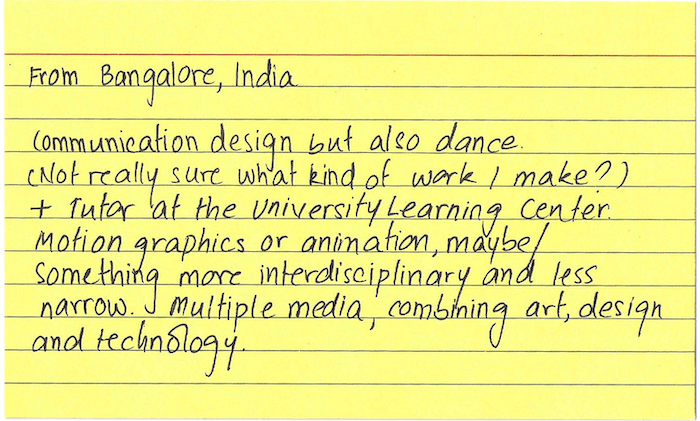 From Bangalore, India
Communication design but also dance.
(Not really sure what kind of work I make?)
+ Tutor at the University Learning Center.
Motion graphics or animation, maybe/
Something more interdisciplinary and less
narrow. Multiple media, combining art, design
and technology.